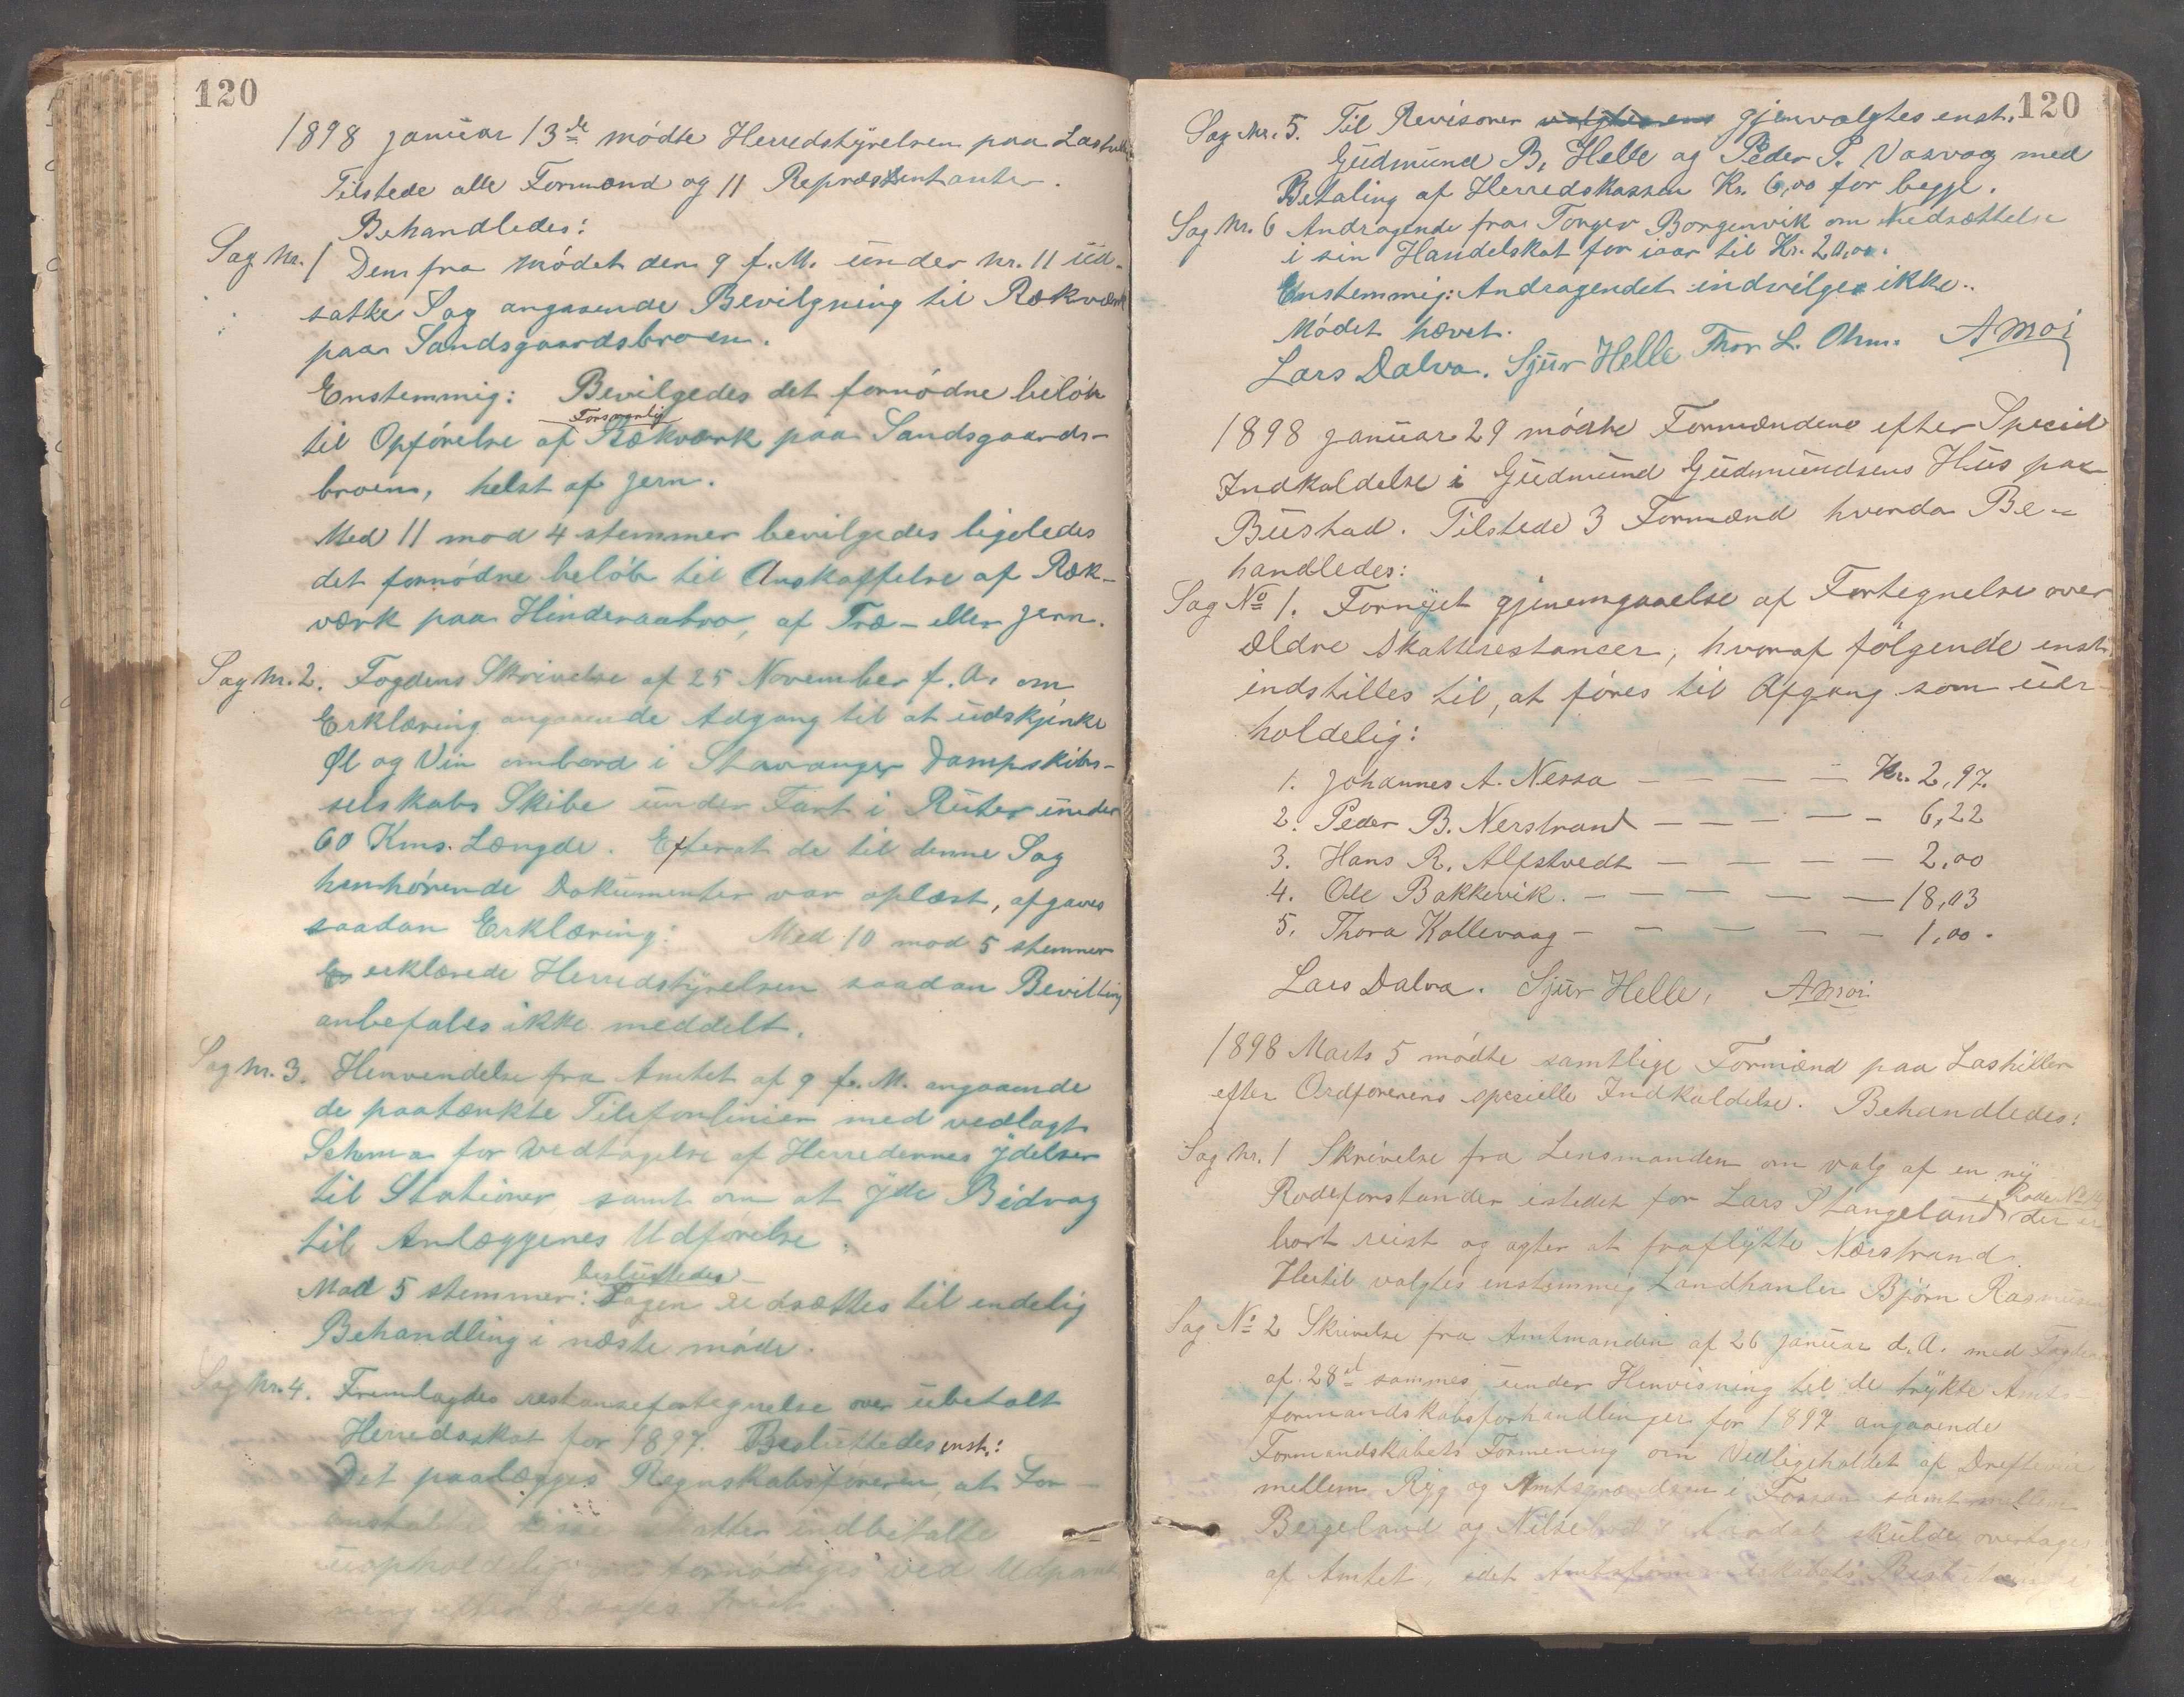 120
1898 januar 13de mødte Herredstyrelsen paa Lashill
Tilstede alle Formænd og 11 Repræsentanter.
Behandledes:
Sag Nr. 1 Den fra mødet den 9 f. M. under Nr. 11 ud-
satte Sag angaaende Bevilgning til Rækværk
paa Sandsgaardsbroen.
Enstemmig: Bevilgedes det fornødne beløb
Forsvarlig
til Opførelse af Rækværk paa Sandsgaards-
broen, helst af jern.
Med 11 mod 4 stemmer bevilgedes ligeledes
det fornødne beløb til Anskaffelse af Ræk-
værk paa Hinderaabro, af Træ- eller jern.
Sag Nr. 2. Fogdens Skrivelse af 25 November f. A. om
Erklæring angaaende Adgang til at udskjenke
Øl og Vin ombord i Stavanger Dampskibs-
selskabs Skibe under Fart i Ruter under
60 Kms. Længde. Efterat de til denne Sag
henhørende Dokumenter var oplæst, afgaves
saadan Erklæring: Med 10 mod 5 stemmer
erklærede Herredstyrelsen saadan Bevilling
anbefales ikke meddelt.
Sag Nr. 3. Henvendelse fra Amtet af 9 f. M. angaaende
de paatænkte Telefonlinier med vedlagt
Schema for vedtagelse af Herredernes ydelser
til Stationer, samt om at yde Bidrag
til Anlæggenes Udførelse.
besluttedes
Mod 5 stemmer: Sagen udsættes til endelig
Behandling i næste møde.
Sag Nr. 4. Fremlagdes restancefortegnelse over ubetalt
Herredsskat for 1897. Besluttedes enst.:
Det paalægges Regnskabsføreren, at For-
anstalte disse skatter indbetalte
uopholdelig om fornødiges ved Udpant-
ning efter
120
Sag Nr. 5. Til Revisorer gjenvalgtes enst.
Gudmund B. Helle og Peder P. Vasvag med
Betaling af Herredskassen Kr. 6,00 for begge.
Sag Nr. 6 Andragende fra Torger Borgenvik om Nedsættelse
i sin Handelskat for iaar til Kr. 20,00.
Enstemmig: Andragendet indvilges ikke.
Mødet hævet.
Lars Dalva. Sjur Helle Thor L. Ohm. A Moi
1898 januar 29 mødte Formændene efter Speciel
Indkaldelse i Gudmund Gudmundsens Hus paa
Bustad. Tilstede 3 Formænd hvorda Be-
handledes:
Sag No 1. Fornyet gjenemgaaelse af Fortegnelse over
ældre Skatterestancer, hvoraf følgende enst.
indstilles til, at føres til Afgang som uer-
holdelig:
1. Johannes A. Nessa — — — — Kr. 2,97.
2. Peder B. Nerstrand — — — — — 6,22
3. Hans R. Alfstvedt — — — — 2,00
4. Ole Bakkevik. — — — — — 18,03
5. Thora Kallevaag — — — — — 1,00.
Lars Dalva. Sjur Helle, A Moi
1898 Marts 5 mødte samtlige Formænd paa Lashiller
efter Ordførerens specielle Indkaldelse. Behandledes:
Sag Nr. 1 Skrivelse fra Lensmanden om valg af en ny
i Rode No
Rodeforstander istedet for Lars Stangeland der er
bort reist og agter at fraflytte Nærstrand.
Hertil valgtes enstemmig Landhanler Bjørn Rasmussen
Sag No 2 Skrivelse fra Amtmanden af 26 januar d. A. med Fogdens
af 28d sammes, under Henvisning til de trykte Amts-
formandskabsforhandlinger for 1897 angaaende
Formandskabets Formening om Vedligeholdet af Drifteveie
mellem Ryg og Amtsgrændsen i Fossan samt mellem
Bergeland og Nilsebod i Aardal skulde overtages
af Amtet, idet Amtsformandskabets Beslutning i